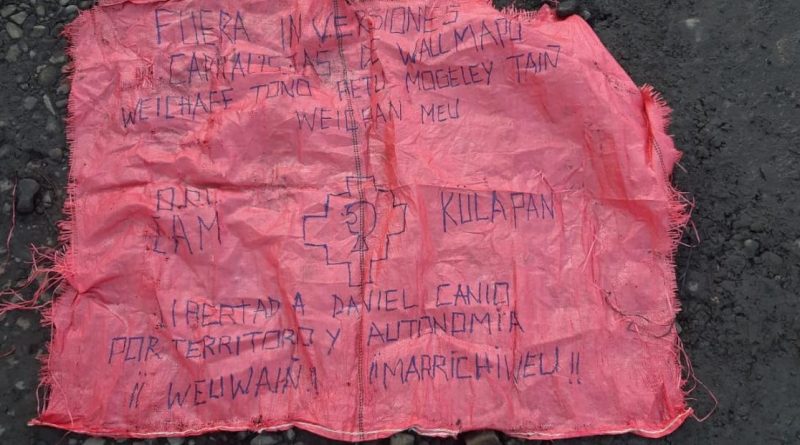 FUERA INVERSIONES
CAPITALISTAS D WALLMAPU
WEICHAFE TOÑO HETU MOGELEY TAIÑ
WEICHAN MEU
O.R.T KULAPAN
CAM
LIBERTAD A DANIEL CANIO
POR TERRITORO Y AUTONOMÍA
¡¡ WEUWAIÑ! ¡¡MARRICHIWEU!!